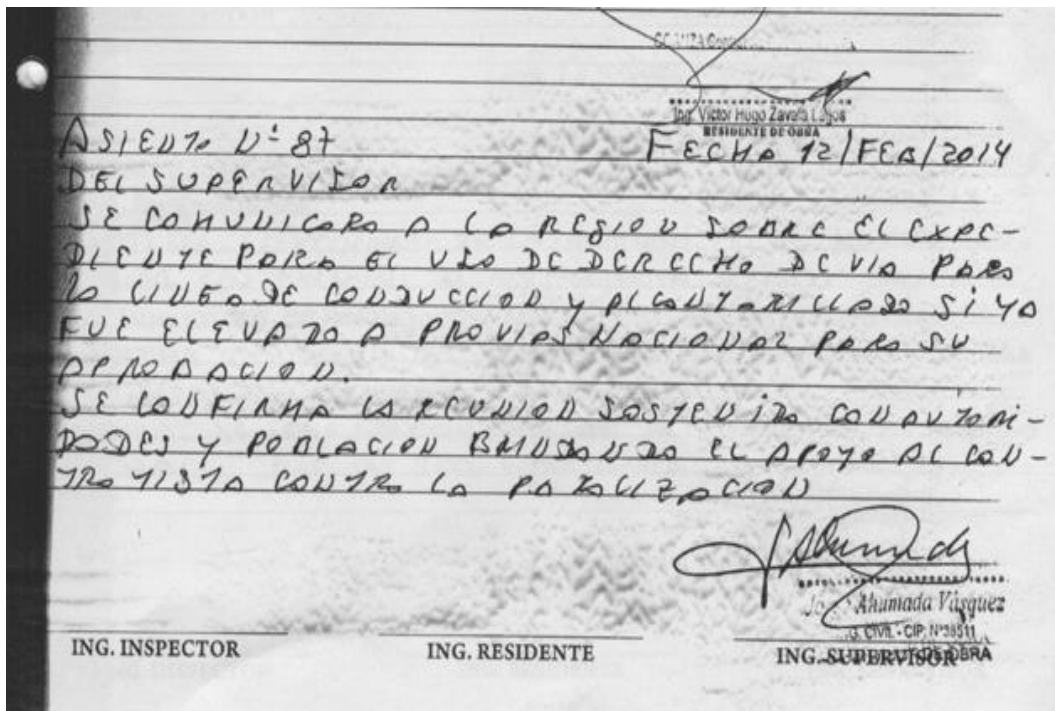 Ing. Victor Hugo Zavala Lagos
RESIDENTE DE OBRA
ASIENTO Nº 87 FECHA 12/FEB/2014
DEL SUPERVISOR
SE COMUNICARA A LA REGION SOBRE EL EXPE-
DIENTE PARA EL USO DE DERECHO DE VIA PARA
LA LINEA DE CONDUCCION Y ALCANTARILLADO SI YA
FUE ELEVADO A PROVIAS NACIONAL PARA SU
APROBACION.
SE CONFIRMA LA REUNION SOSTENIDA CON AUTORI-
DADES Y POBLACION BRINDANDO EL APOYO AL CON-
TRATISTA CONTRA LA PARALIZACION
Ahumada Vásquez
G. CIVIL - CIP. Nº38511
DE OBRA
ING. INSPECTOR ING. RESIDENTE ING. SUPERVISOR